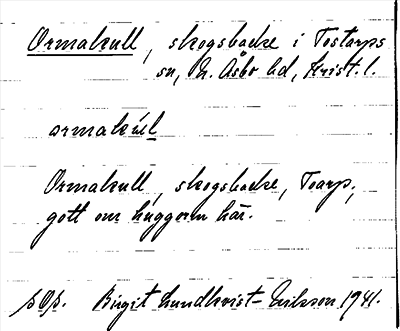 Ormakull, skogsbacke i Tostarps
sn, N. Åsbo hd, Krist. l.
ormakúl
Ormakull, skogsbacke, Toarp,
gott om huggorm här.
Birgit Lundkvist-Eriksson 1941.